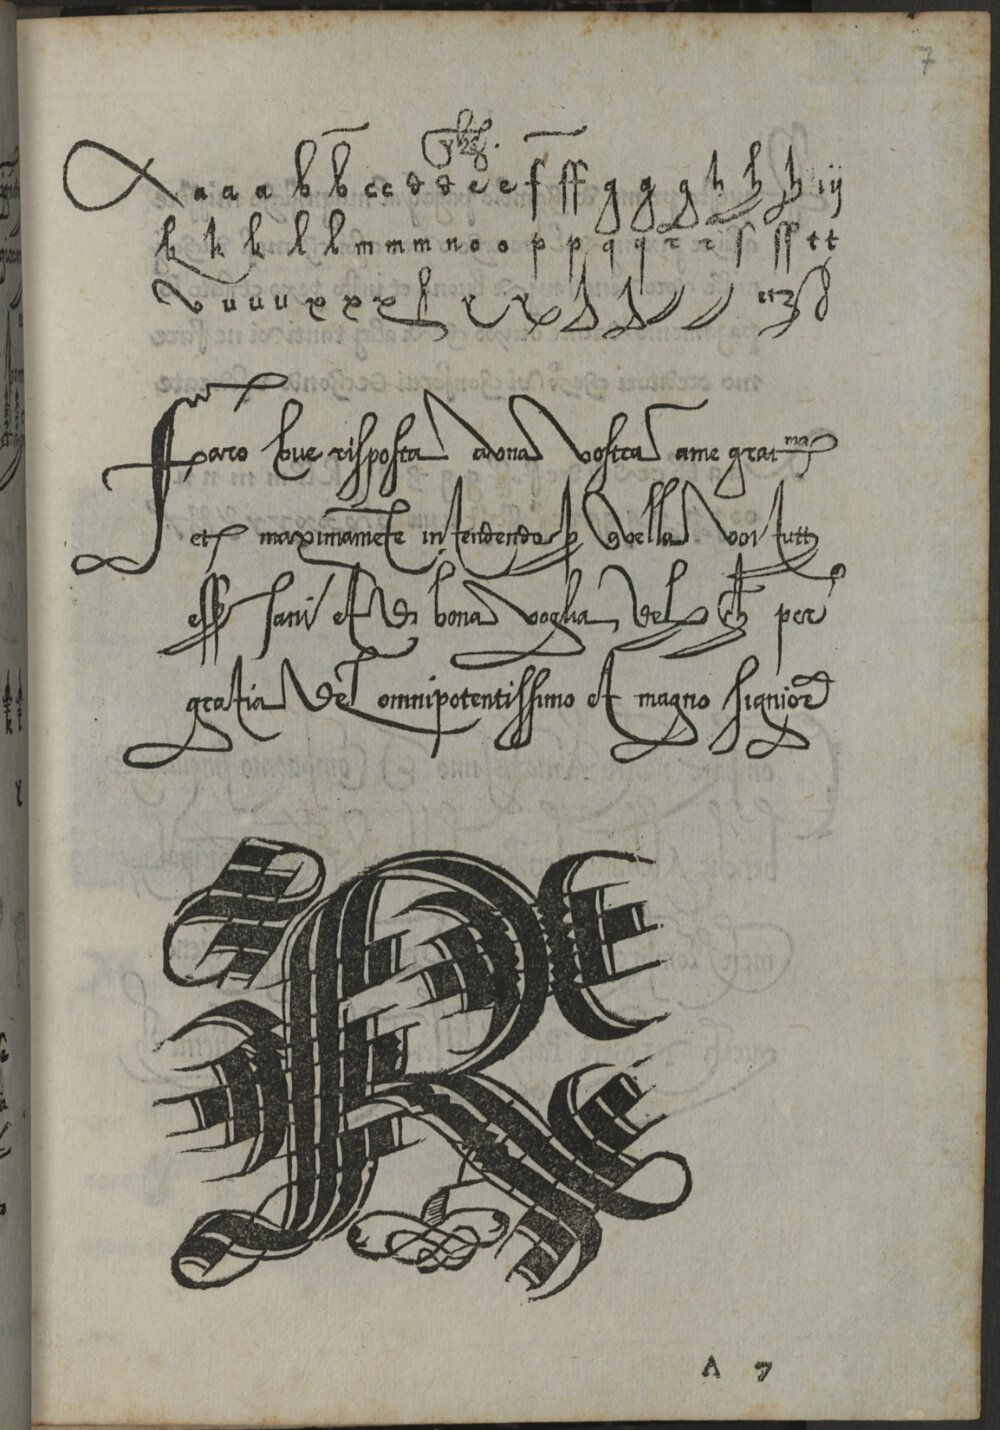 7
yhs.
a a a a b b c c d d e e f ff g g g h h h i ij
k k k l l m m m n o o p p q q r r s ss t t
v u u u x x x
Faro brue risposta ad una vostra a me grat ma
et maximamēte intendendo p quella voi tutti
essere sani et di bona voglia del ch per
gratia del omnipotentissimo et magno signiore
R
A 7